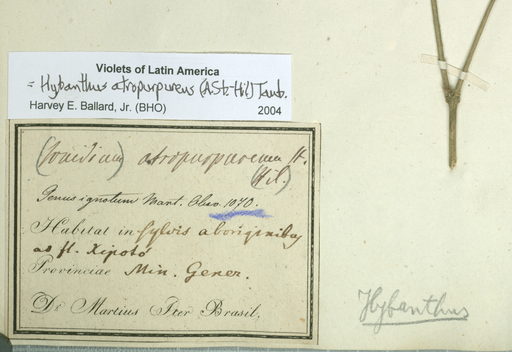 Violets of Latin America
= Hybanthus atropurpureus (A.St.-Hil) Taub.
Harvey E. Ballard, Jr. (BHO) 2004
(Ionidium) atropurpureum St.
(Hil.)
Genus ignotum Mart. Obs. 1070.
Habitat in sylvis aboriginibus
ad fl. Xipotó
Provinciae Min. Gener.
De Martius Iter Brasil.
Hybanthus